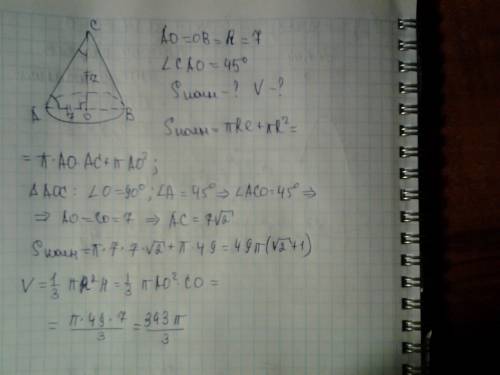 C
A 7 O B
AO = OB = R = 7
∠CAO = 45°
Sполн - ? V - ?
Sполн = πRl + πR² =
= π·AO·AC + πAO²;
ΔAOC: ∠O = 90°, ∠A = 45° ⇒ ∠ACO = 45° ⇒
⇒ AO = CO = 7 ⇒ AC = 7√2
Sполн = π·7·7·√2 + π·49 = 49π(√2+1)
V = 1/3 πR²H = 1/3 πAO²·CO =
= π·49·7/3 = 343π/3